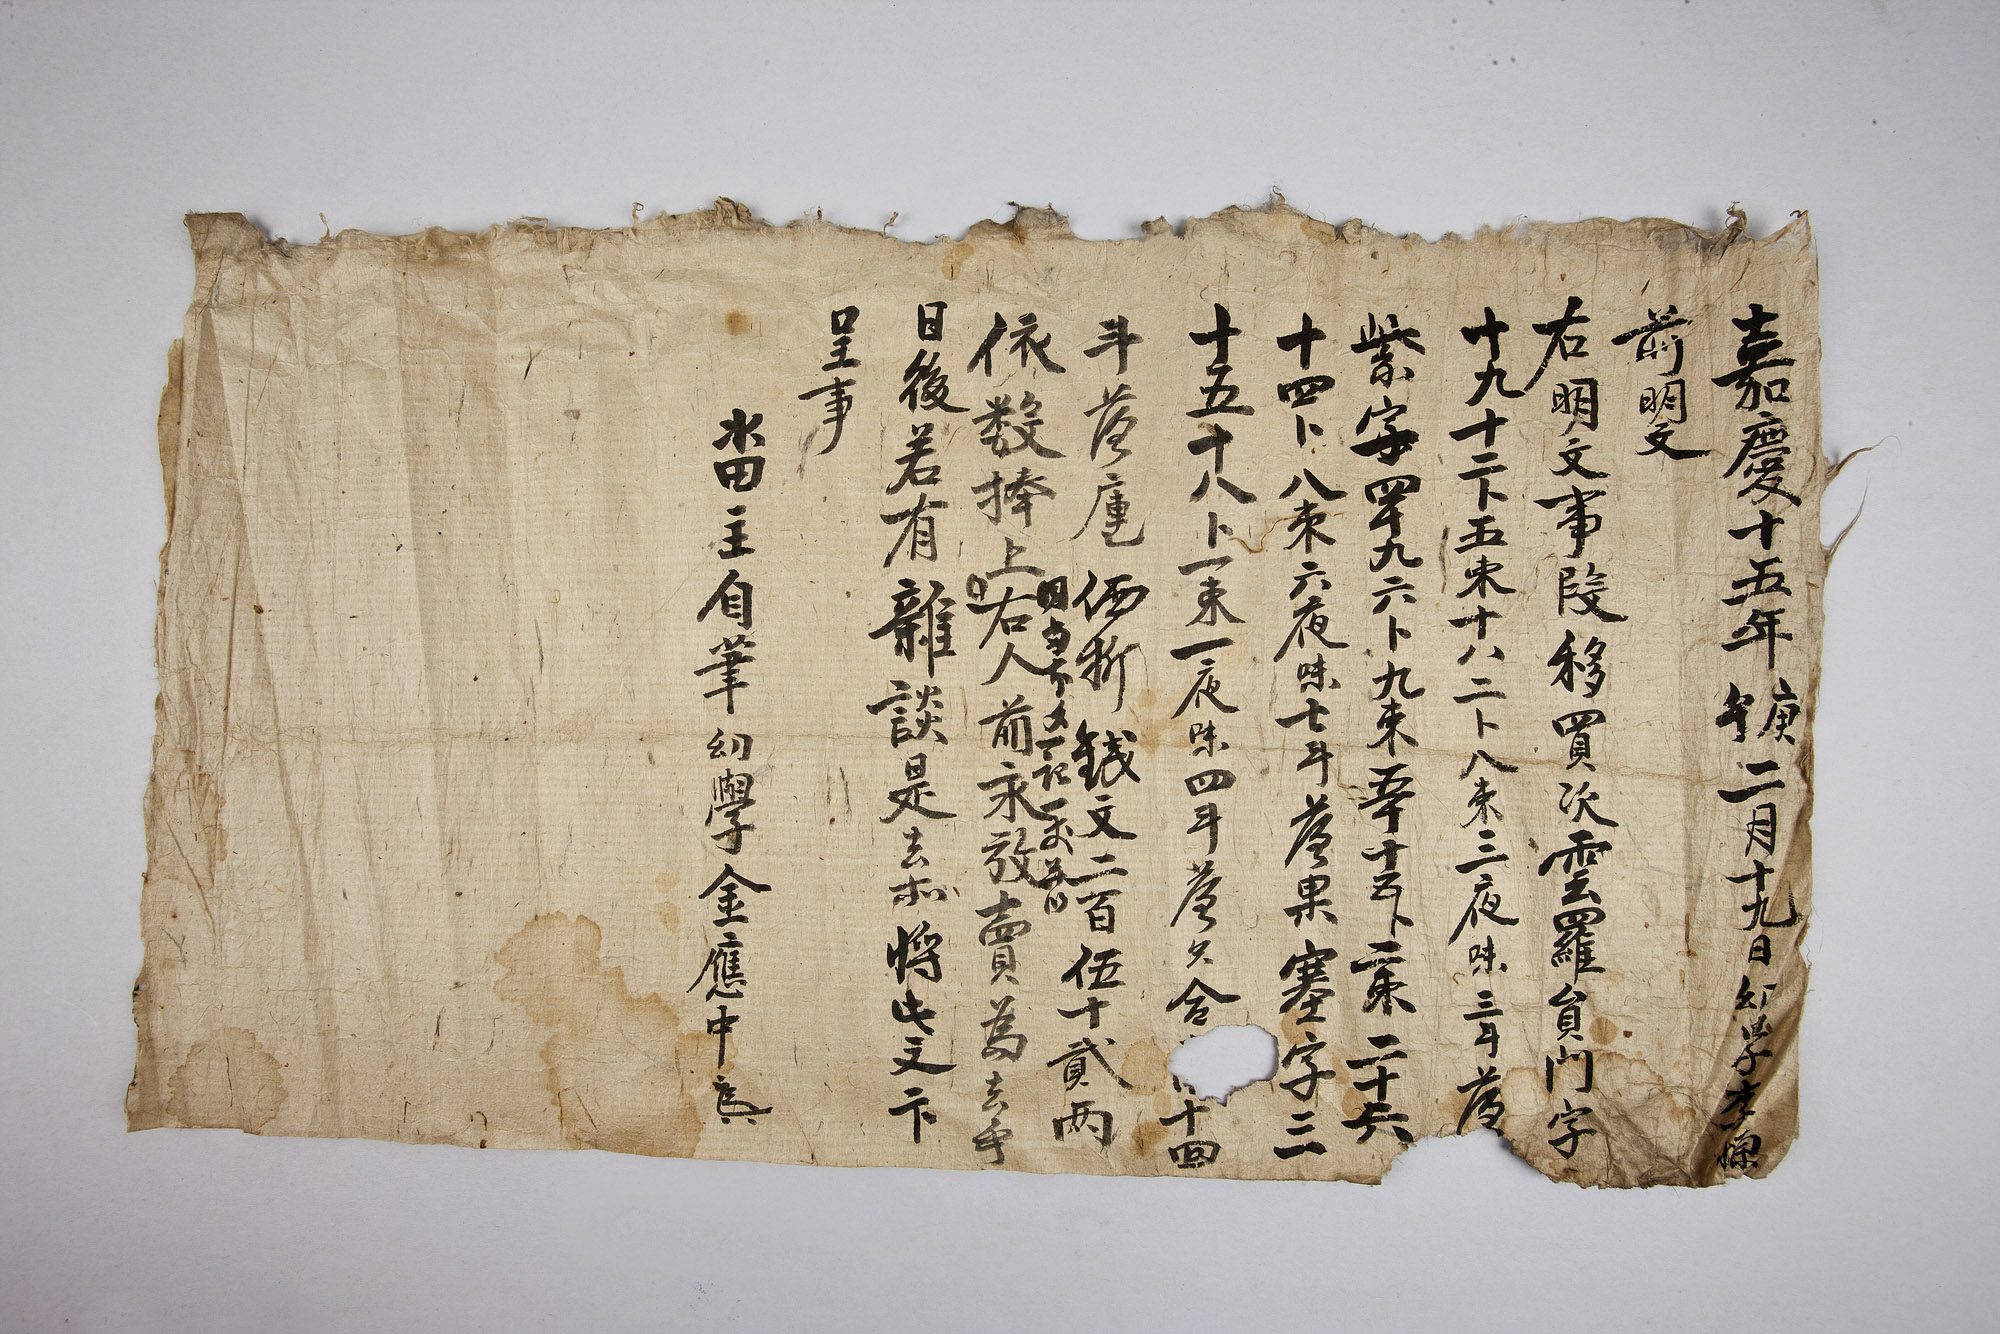 嘉慶十五年庚午二月十九日幼學李
前明文
右明文事段移買次雲羅員門字
十九十二卜五束十八二卜八束三夜味三斗落
紫字四十九六卜九束五十十五卜二束二十六
十四卜八束六夜味七斗落果塞字三
十五十八卜一束一夜味四斗落 合 十四
斗落庫価折錢文二百伍十貳兩
依數捧上右人前永放賣爲去乎
日後若有雜談是去和將此文卞
呈事
畓主自筆幼學金應中